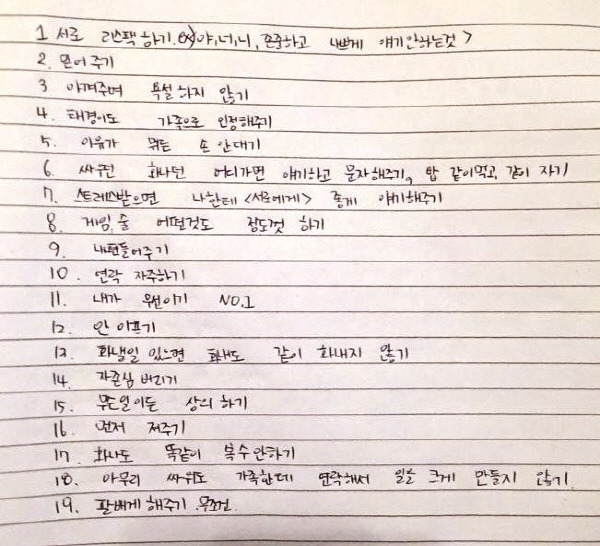 1 서로 리스팩 하기. ex)야, 너, 니, 존중하고 나쁘게 얘기안하는것>
2. 믿어 주기
3 아껴주며 욕설하지 않기
4. 태경이도 가족으로 인정해주기
5. 이유가 뭐든 손 안대기
6. 싸우던 화나던 어디가면 얘기하고 문자해주기, 밥 같이먹고 같이 자기
7. 스트레스받으면 나한테 <서로에게> 좋게 얘기해주기
8. 게임, 술 어떤것도 정도껏 하기
9. 내편들어주기
10. 연락 자주하기
11. 내가 우선이기 NO.1
12. 안 아프기
13. 화낼일 있으면 화내도 같이 화내지 않기
14. 자존심 버리기
15. 무슨일이든 상의 하기
16. 먼저 져주기
17. 화나도 똑같이 복수안하기
18. 아무리 싸워도 가족한테 연락해서 일을 크게 만들지 않기
19. 팔베게 해주기 무조건.